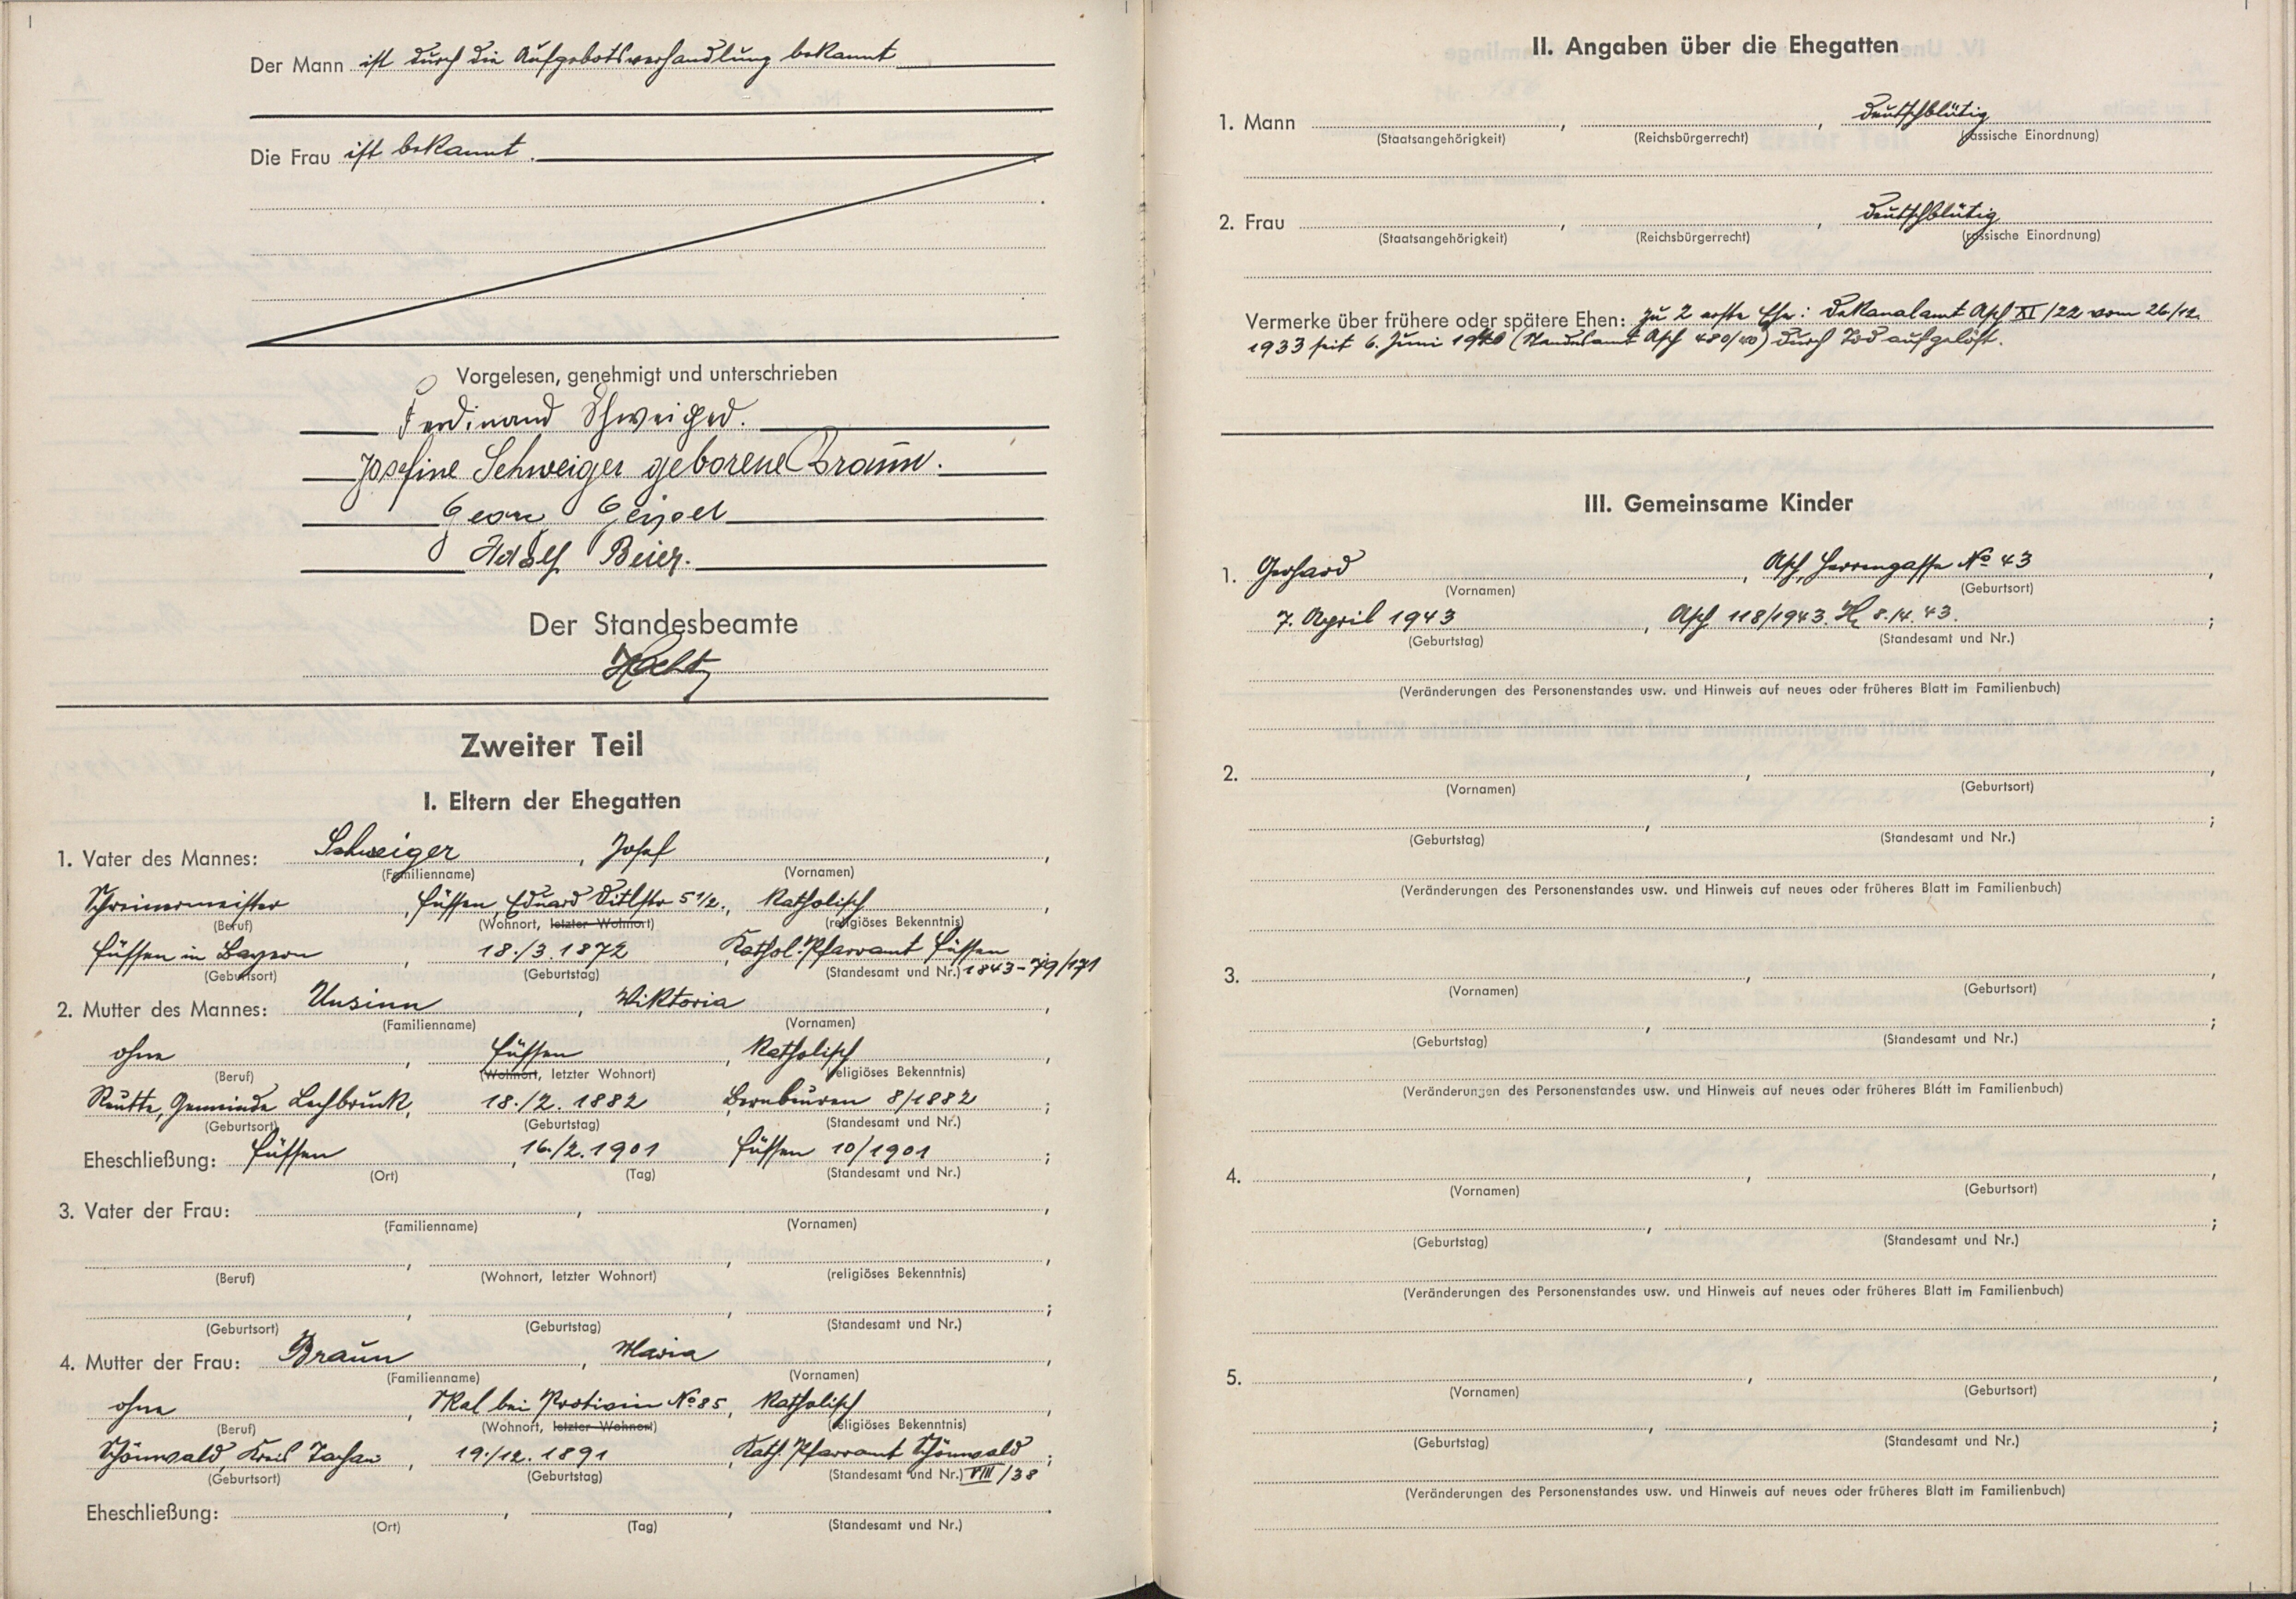 Der Mann ist durch die Aufgebotsverhandlung bekannt
Die Frau ist bekannt.
Vorgelesen, genehmigt und unterschrieben
Ferdinand Schweiger.
Josefine Schweiger geborene Braun.
Georg Geipel
Adolf Beier.
Der Standesbeamte
Zweiter Teil
I. Eltern der Ehegatten
1. Vater des Mannes: Schweiger, Josef,
(Familienname) (Vornamen)
Schreinermeister, Füssen, Eduard 5 1/2., katholisch,
(Beruf) (Wohnort, letzter Wohnort) (religiöses Bekenntnis)
Füssen in Bayern, 18./3.1872, Kathol. Pfarramt Füssen
(Geburtsort) (Geburtstag) (Standesamt und Nr.) 1843-79/171
2. Mutter des Mannes: Unsinn, Wiktoria,
(Familienname) (Vornamen)
ohne, Füssen, katholisch,
(Beruf) (Wohnort, letzter Wohnort) (religiöses Bekenntnis)
Reutte, Gemeinde Lechbruck, 18./2. 1882, Bernbeuren 8/1882;
(Geburtsort) (Geburtstag) (Standesamt und Nr.)
Eheschließung: Füssen, 16./2.1901 Füssen 10/1901;
(Ort) (Tag) (Standesamt und Nr.)
3. Vater der Frau: , ,
(Familienname) (Vornamen)
(Beruf) (Wohnort, letzter Wohnort) (religiöses Bekenntnis)
(Geburtsort) (Geburtstag) (Standesamt und Nr.)
4. Mutter der Frau: Braun, Maria,
(Familienname) (Vornamen)
ohne, Skal bei Protivin No 85, katholisch,
(Beruf) (Wohnort, letzter Wohnort) (religiöses Bekenntnis)
Schönwald, Kreis Tachau, 19./12.1891, Kath. Pfarramt Schönwald;
(Geburtsort) (Geburtstag) (Standesamt und Nr.) VIII/38
Eheschließung: , , .
(Ort) (Tag) (Standesamt und Nr.)
II. Angaben über die Ehegatten
1. Mann , , deutschblütig
(Staatsangehörigkeit) (Reichsbürgerrecht) (rassische Einordnung)
2. Frau , , deutschblütig
(Staatsangehörigkeit) (Reichsbürgerrecht) (rassische Einordnung)
Vermerke über frühere oder spätere Ehen: zu 2 erste Ehe: Dekanalamt Asch XI/22 vom 26./12.
1933 seit 6. Juni 1940 (Standesamt Asch 480/40) durch Tod aufgelöst.
III. Gemeinsame Kinder
1. Gerhard, Asch, Herrengasse No 43,
(Vornamen) (Geburtsort)
7. April 1943, Asch 118/1943. 8.14.43.;
(Geburtstag) (Standesamt und Nr.)
(Veränderungen des Personenstandes usw. und Hinweis auf neues oder früheres Blatt im Familienbuch)
2. , ,
(Vornamen) (Geburtsort)
(Geburtstag) (Standesamt und Nr.)
(Veränderungen des Personenstandes usw. und Hinweis auf neues oder früheres Blatt im Familienbuch)
3. , ,
(Vornamen) (Geburtsort)
(Geburtstag) (Standesamt und Nr.)
(Veränderungen des Personenstandes usw. und Hinweis auf neues oder früheres Blatt im Familienbuch)
4. , ,
(Vornamen) (Geburtsort)
(Geburtstag) (Standesamt und Nr.)
(Veränderungen des Personenstandes usw. und Hinweis auf neues oder früheres Blatt im Familienbuch)
5. , ,
(Vornamen) (Geburtsort)
(Geburtstag) (Standesamt und Nr.)
(Veränderungen des Personenstandes usw. und Hinweis auf neues oder früheres Blatt im Familienbuch)